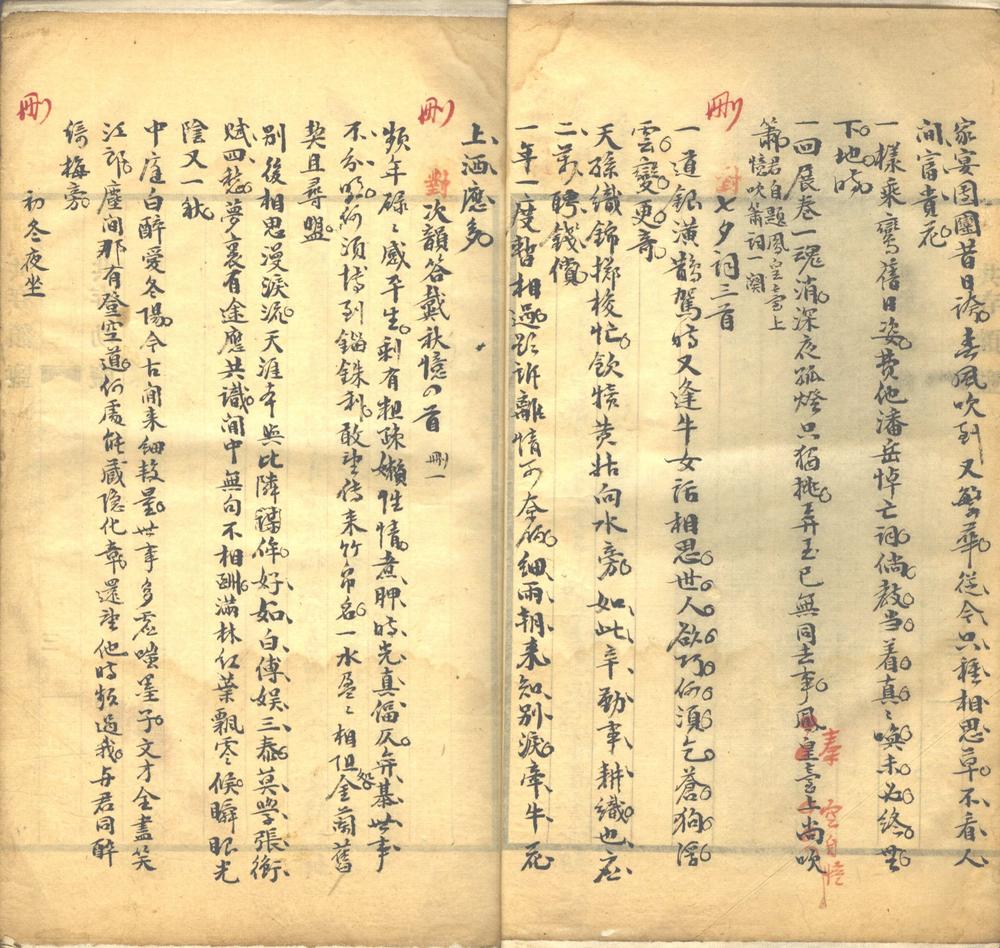 家宴团圞昔日誇春風吹到又繁華從今只種相思草不看人
间富貴花
一樣乘鸞舊日姿費他潘岳悼亡詞倘教当着真真喚未必終無
下地時
一回展卷一魂消深夜孤燈只獨挑弄玉已無同去事鳳皇臺上尚吹
秦 空自憶
簫 君自題鳳皇臺上
憶吹簫詞一闋
刪
對 七夕詞三首
一道銀潢鵲駕時又逢牛女話相思世人欲巧何須乞蒼狗浮
雲變更奇
天孫織錦擲梭忙飲犢黄姑向水旁如此辛勤事耕織也应
二萬聘錢償
一年一度暫相過訴離情可奈何細雨朝来知别淚牽牛花
上酒應多
刪
對 次韻答戴秋憶 首 刪一
頻年碌ミ感平生剩有粗疎嬾性情煮胛時光真偪仄弃棊世事
不分明何須博到錙銖利敢望傳来竹帛名一水盈ミ相阻處金蘭舊
契且尋盟
别後相思漫淚流天涯本與比隣侔好如白傅娱三泰莫學張衡
賦四愁夢裏有途應共識閒中無句不相酬滿林红葉飄零候瞬眼光
陰又一秋
中庭白醉愛冬陽今古閒来細較量世事多虚嗤墨子文才全盡笑
江郎塵间那有登空道何處能藏隐化章還望他時頻過我与君同醉
綺梅旁
刪
初冬夜坐